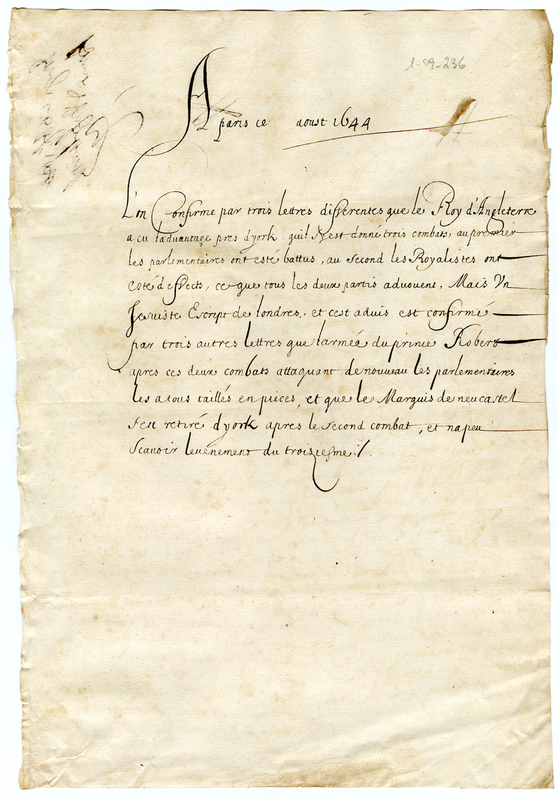 1-09-236
A paris ce aoust 1644
L'on Confirme par trois lettres differentes que le Roy d'Angleterre
a eu ladvantage pres dyork quil s'y est donné trois combats, au premier
les parlementaires ont esté battus, au second les Royalistes ont
esté deffects, ce que tous les deux partis advouent, Mais Un
Jesuiste Escript de londres, et cest advis est confirmé
par trois autres lettres que larmée du prince Robert
apres ces deux combats attaquant de nouveau les parlementaires
les a tous taillés en pieces, et que le Marquis de neucastel
sen retiré dyork apres le second combat, et na peu
scavoir levenement du troiziesme /.